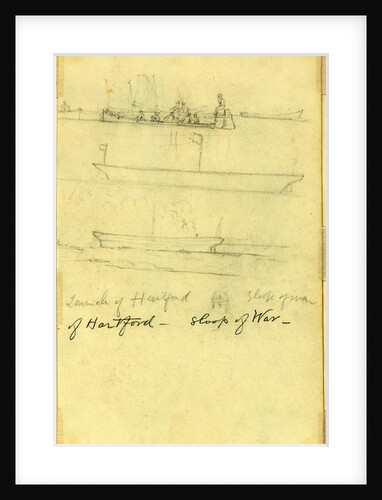 Launch of Hartford Sloop of war
of Hartford — Sloop of War —